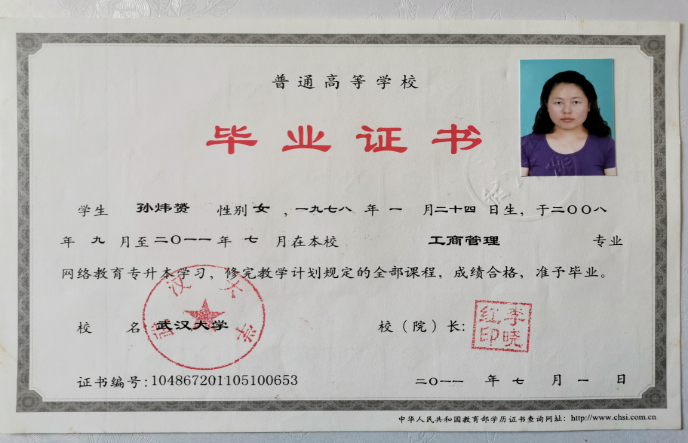 普通高等学校
毕业证书
学生 孙炜赟 性别 女 ，一九七八 年 一 月二十四日生，于二〇〇八
年 九 月至二〇一一年 七 月在本校 工商管理 专业
网络教育专升本学习，修完教学计划规定的全部课程，成绩合格，准予毕业。
校 名：武汉大学 校（院）长：
李晓红印
证书编号：104867201105100653 二〇一一 年 七 月 一 日
中华人民共和国教育部学历证书查询网址：http://www.chsi.com.cn